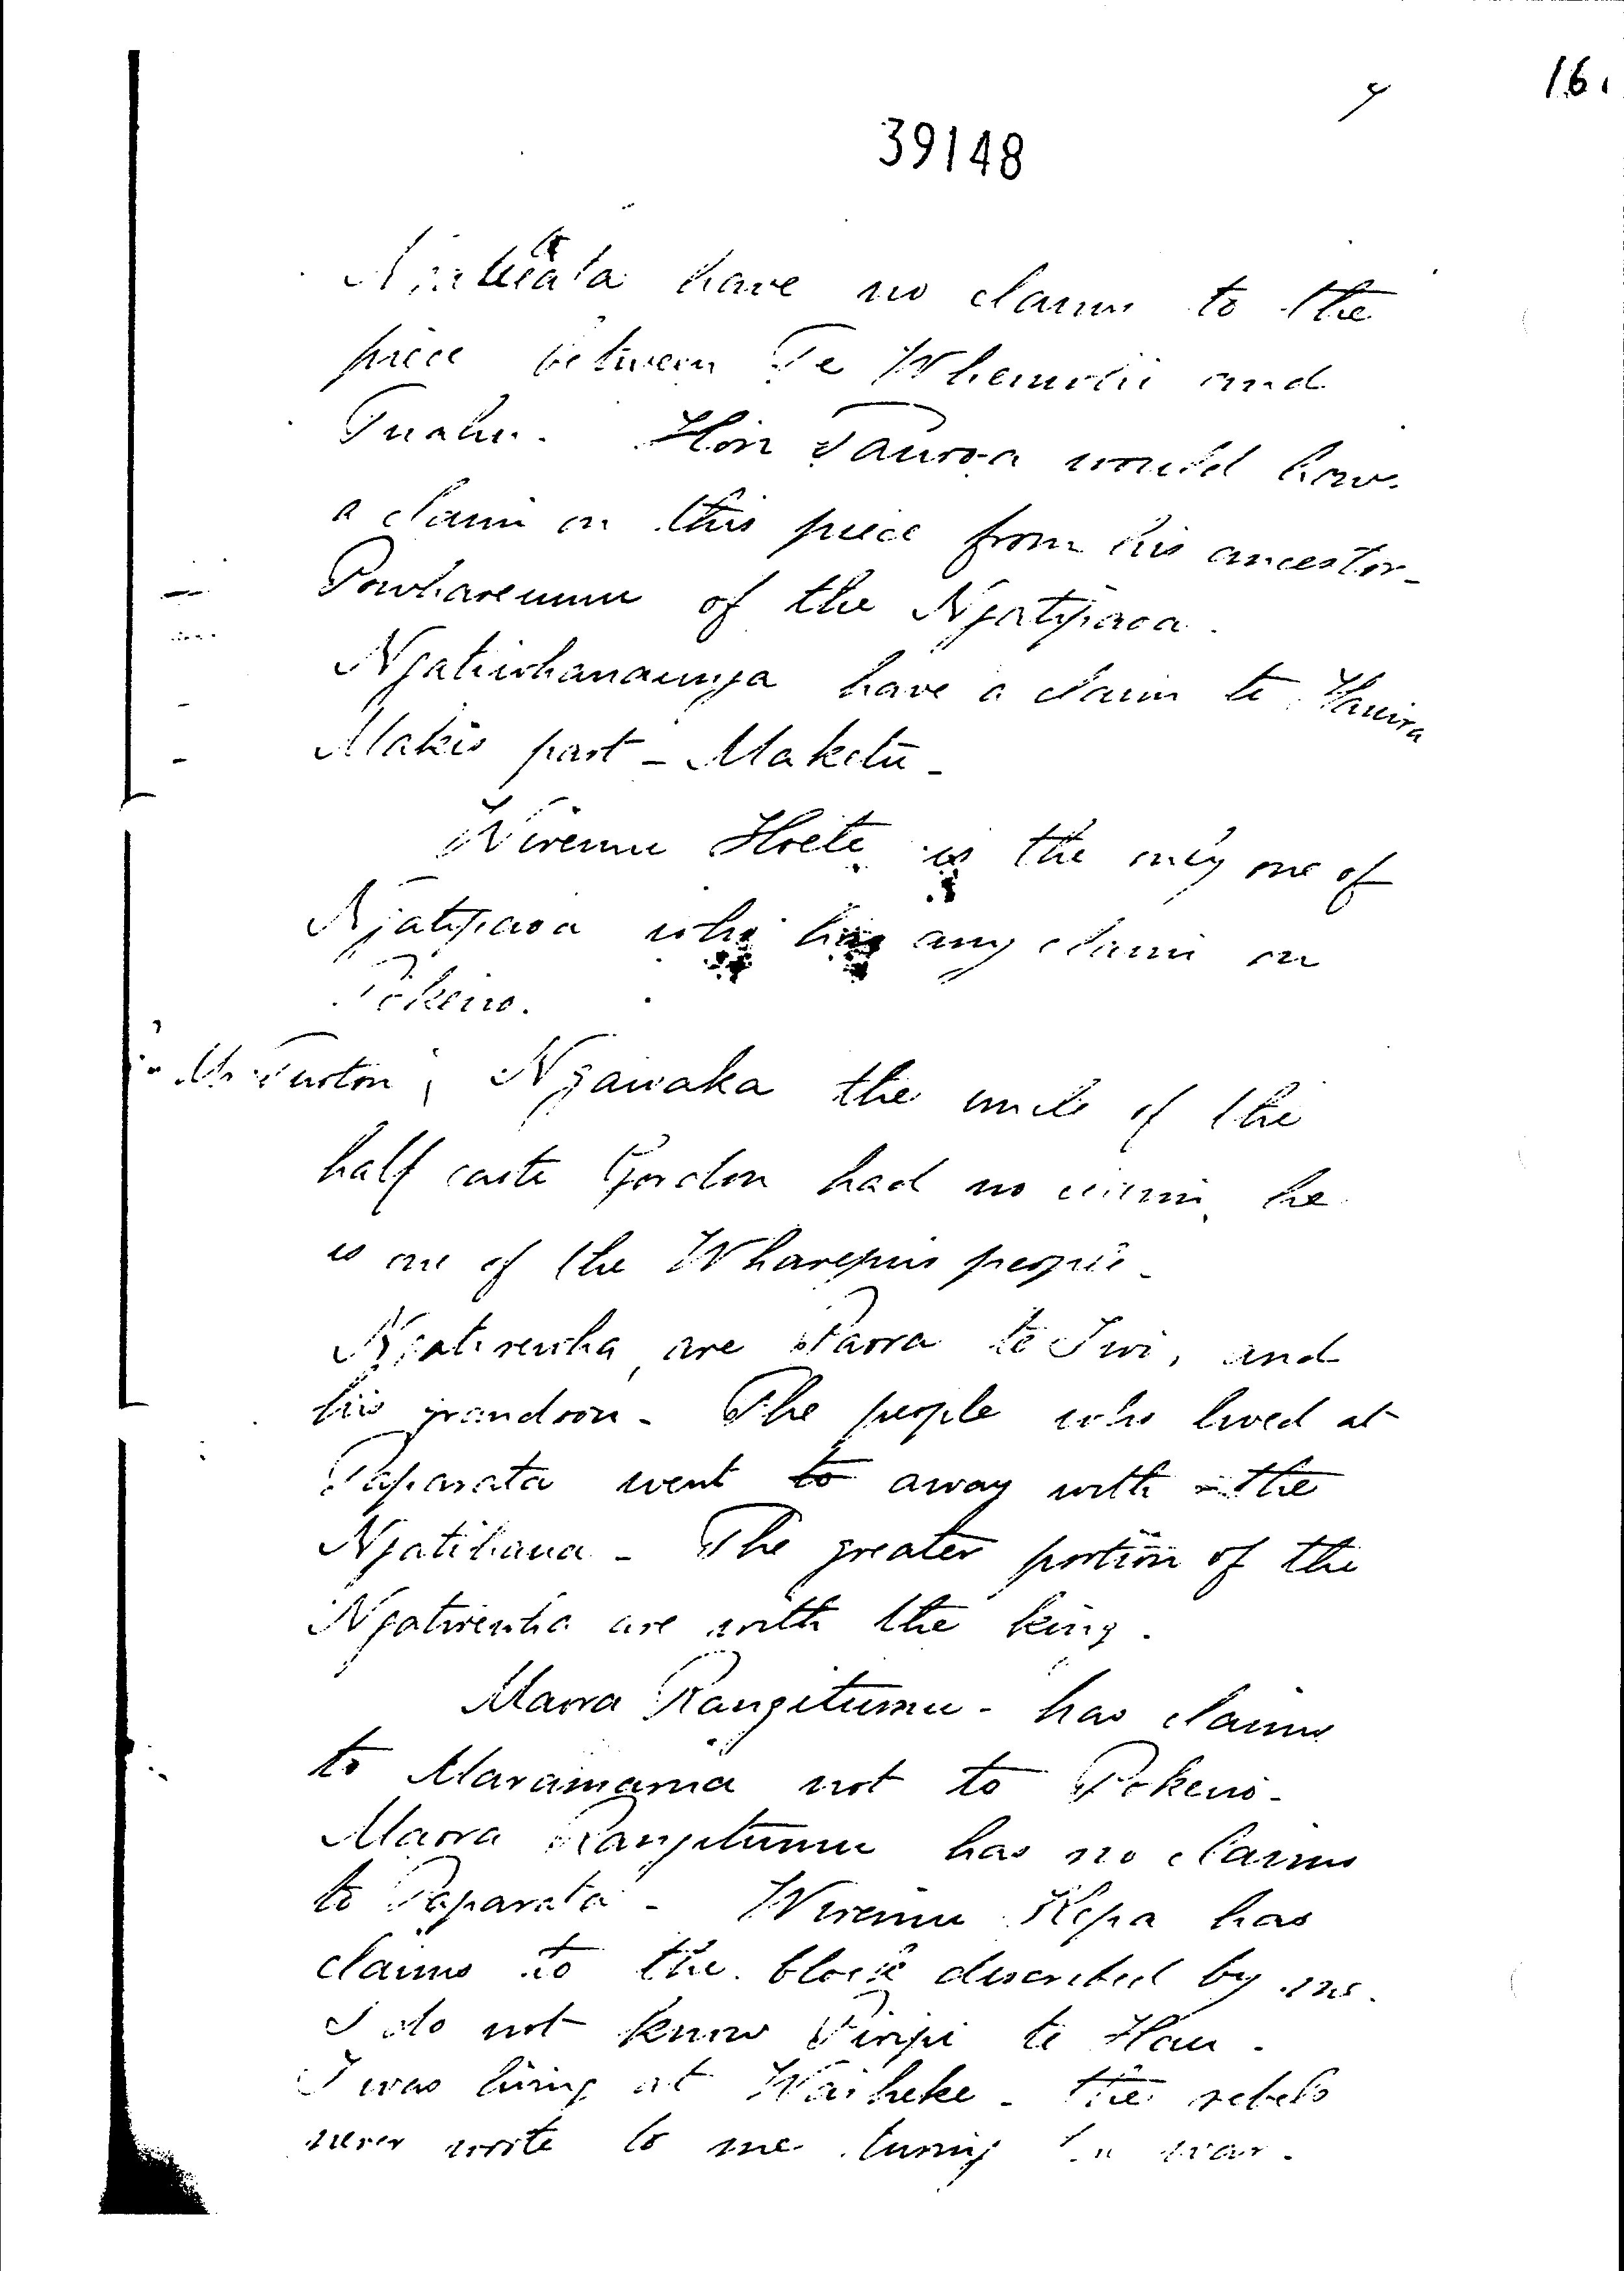 16.
39148
have no claims to the
piece between Te and
Tuahu. Hori Tauroa would have
a claim on this piece from his ancestor -
Powharenumu of the Ngatipaoa.
Ngatiwhanaunga have a claim to Hanira
Makis part - Maketu -
Wiremu Hoete is the only one of
Ngatipaoa who has any claim on
Pokeno.
Mr Turton; Ngawaka the uncle of the
half caste Gordon had no claim, he
is one of the Wharepuis people -
Ngatirewha are Paora te Iwi, and
his grandson - The people who lived at
Paparata went to away with the
Ngatihaua - The greater portion of the
Ngatirewha are with the king.
Maora Rangitumu - has claims
to Maramarua not to Pokeno -
Maora Rangitumu has no claims
to Paparata - Wiremu Kepa has
claims to the block described by me.
I do not know Piripi te Hau.
I was living at Waiheke - the rebels
never wrote to me during the war.